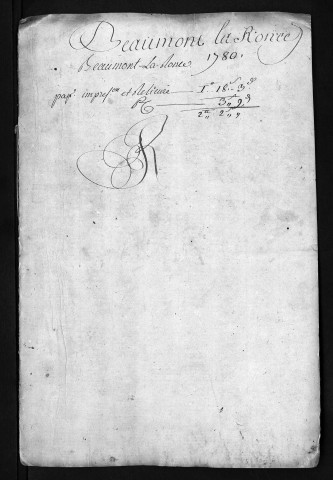 Beaumont la Ronce
Beaumont-La-Ronce 1780.
pap.r impres.on et Relieure — 1# 18s 9d
3s 9d
2# 2s 6d